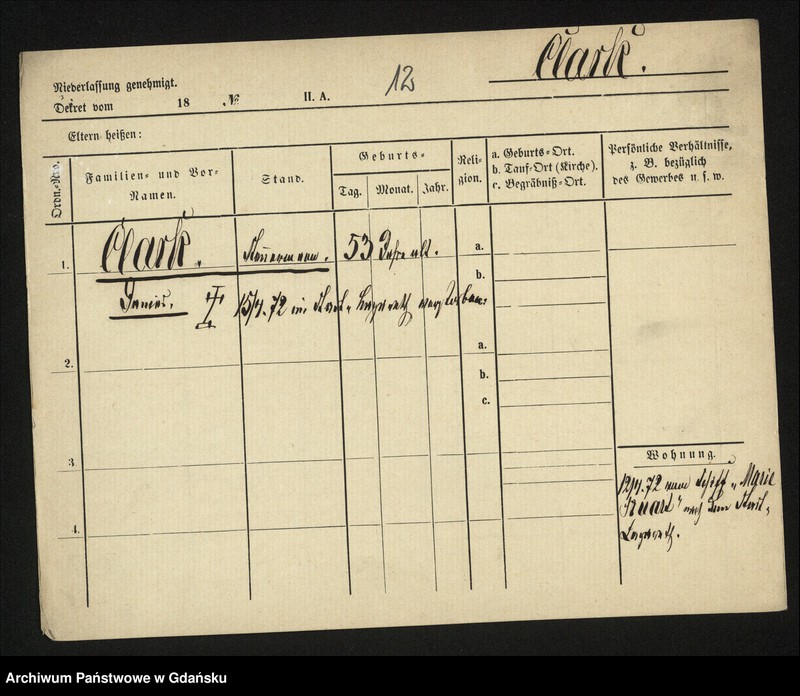 Clark.
Niederlassung genehmigt.
12
Dekret vom 18 .№ II. A.
Eltern heißen:
Ordn.-Nro.
Familien- und Vor-
Namen.
Stand.
Geburts-
Tag. Monat. Jahr.
Reli-
gion.
a. Geburts-Ort.
b. Tauf-Ort (Kirche).
c. Begräbniß-Ort.
Persönliche Verhältnisse,
z. B. bezüglich
des Gewerbes u. s. w.
1. Clark. Steuermann. 53 Jahre alt. a.
b.
15/4.72 im Stadt-Lazareth verstorben.
a.
2.
b.
c.
3.
4.
Wohnung.
12/4.72 vom Schiff „Marie
Stuart" nach dem Stadt-
Lazareth.
Archiwum Państwowe w Gdańsku